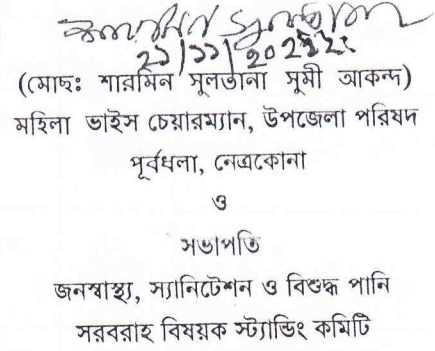 (মোছঃ শারমিন সুলতানা সুমী আকন্দ)
মহিলা ভাইস চেয়ারম্যান, উপজেলা পরিষদ
পূর্বধলা, নেত্রকোনা
ও
সভাপতি
জনস্বাস্থ্য, স্যানিটেশন ও বিশুদ্ধ পানি
সরবরাহ বিষয়ক স্ট্যান্ডিং কমিটি